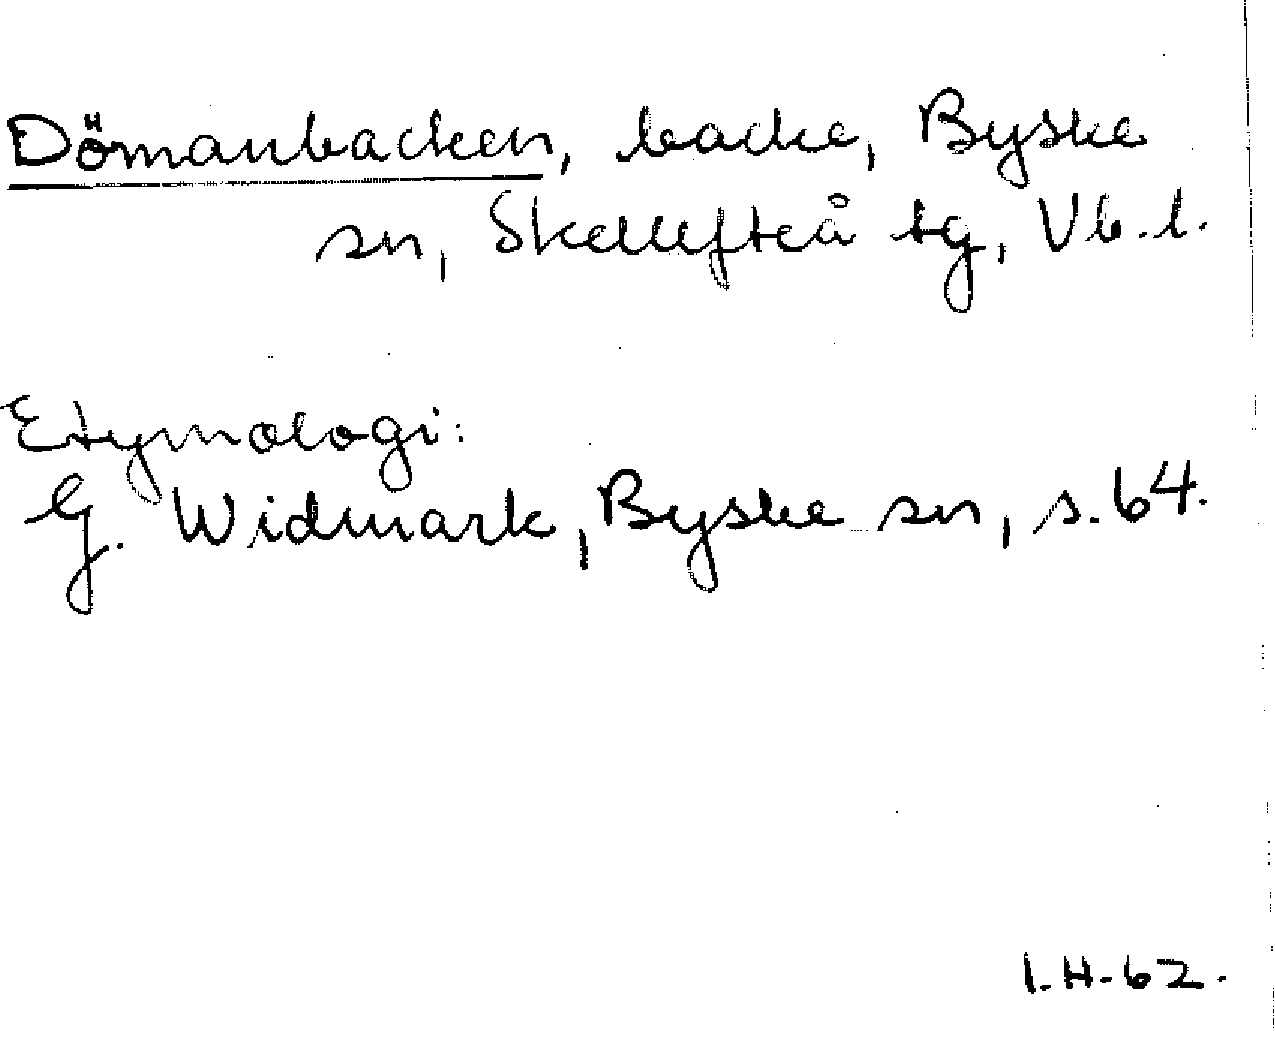 Dömanbacken, backe, Byske
sn, Skellefteå tg, Vb. l.
Etymologi:
G. Widmark, Byske sn, s. 64.
I.H.62.